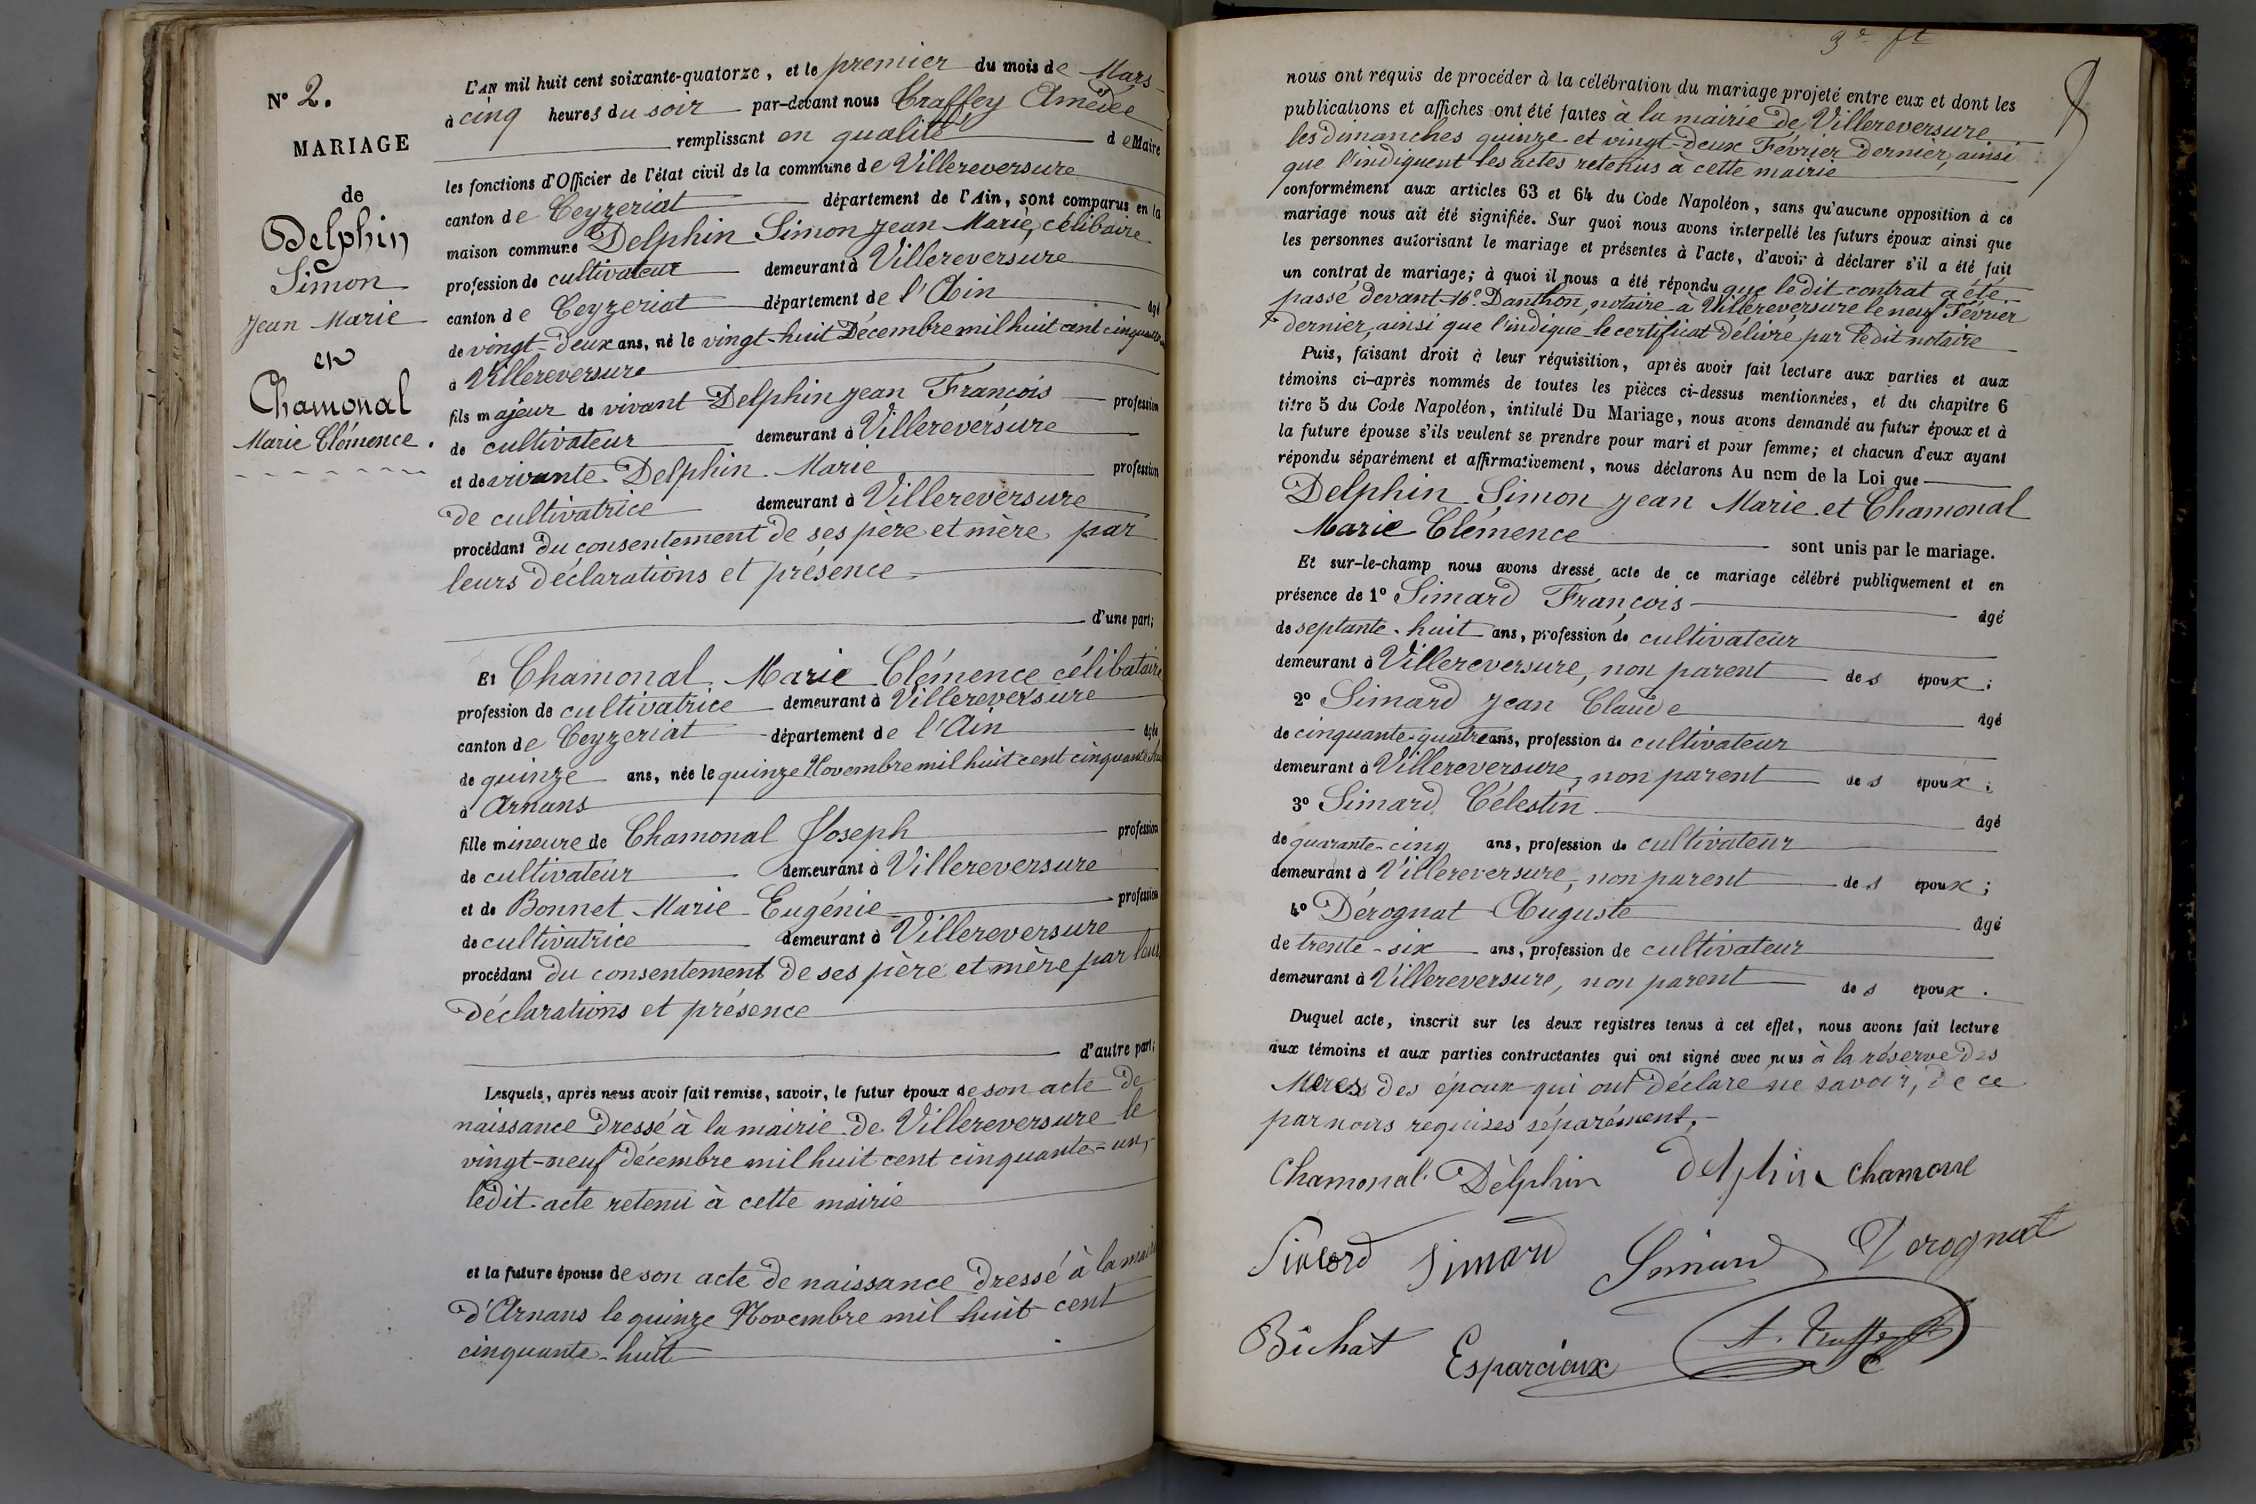 N° 2.
MARIAGE
de
Delphin
Simon
Jean Marie
et
Chamonal
Marie Clémence.
L'AN mil huit cent soixante-quatorze, et le premier du mois de Mars
à cinq heures du soir par-devant nous Traffey Amédée
remplissant en qualité de Maire
les fonctions d'Officier de l'état civil de la commune de Villereversure
canton de Ceyzeriat département de l'Ain, sont comparus en la
maison commune Delphin Simon Jean Marie, célibaire
profession de cultivateur demeurant à Villereversure
canton de Ceyzeriat département de l'Ain âgé
de vingt-deux ans, né le vingt-huit Décembre mil huit cent cinquante
à Villereversure
fils majeur de vivant Delphin Jean François profession
de cultivateur demeurant à Villereversure
et de vivante Delphin Marie profession
de cultivatrice demeurant à Villereversure
procédant du consentement de ses père et mère par
leurs déclarations et présence
d'une part;
Et Chamonal Marie Clémence célibataire
profession de cultivatrice demeurant à Villereversure
canton de Ceyzeriat département de l'Ain âgée
de quinze ans, née le quinze Novembre mil huit cent cinquante-huit
à Arnans
fille mineure de Chamonal Joseph profession
de cultivateur demeurant à Villereversure
et de Bonnet Marie Eugénie profession
de cultivatrice demeurant à Villereversure
procédant du consentement de ses père et mère par leurs
déclarations et présence
d'autre part;
Lesquels, après nous avoir fait remise, savoir, le futur époux de son acte de
naissance dressé à la mairie de Villereversure le
vingt-neuf décembre mil huit cent cinquante-un,
ledit acte retenu à cette mairie
et la future épouse de son acte de naissance dressé à la mairie
d'Arnans le quinze Novembre mil huit cent
cinquante-huit
3e ft
nous ont requis de procéder à la célébration du mariage projeté entre eux et dont les
publications et affiches ont été faites à la mairie de Villereversure
les dimanches quinze et vingt-deux Février dernier, ainsi
que l'indiquent les actes retenus à cette mairie
conformément aux articles 63 et 64 du Code Napoléon, sans qu'aucune opposition à ce
mariage nous ait été signifiée. Sur quoi nous avons interpellé les futurs époux ainsi que
les personnes autorisant le mariage et présentes à l'acte, d'avoir à déclarer s'il a été fait
un contrat de mariage; à quoi il nous a été répondu que ledit contrat a été
passé devant Me Danthon, notaire à Villereversure le neuf Février
dernier, ainsi que l'indique le certificat délivré par ledit notaire
Puis, faisant droit à leur réquisition, après avoir fait lecture aux parties et aux
témoins ci-après nommés de toutes les pièces ci-dessus mentionnées, et du chapitre 6
titre 5 du Code Napoléon, intitulé Du Mariage, nous avons demandé au futur époux et à
la future épouse s'ils veulent se prendre pour mari et pour femme; et chacun d'eux ayant
répondu séparément et affirmativement, nous déclarons Au nom de la Loi que
Delphin Simon Jean Marie et Chamonal
Marie Clémence sont unis par le mariage.
Et sur-le-champ nous avons dressé acte de ce mariage célébré publiquement et en
présence de 1° Simard François âgé
de septante-huit ans, profession de cultivateur
demeurant à Villereversure, non parent des époux;
2° Simard Jean Claude âgé
de cinquante-quatre ans, profession de cultivateur
demeurant à Villereversure, non parent des époux;
3° Simard Célestin âgé
de quarante-cinq ans, profession de cultivateur
demeurant à Villereversure, non parent des époux;
4° Dérognat Auguste âgé
de trente-six ans, profession de cultivateur
demeurant à Villereversure, non parent des époux.
Duquel acte, inscrit sur les deux registres tenus à cet effet, nous avons fait lecture
aux témoins et aux parties contractantes qui ont signé avec nous à la réserve des
Mères des époux qui ont déclaré ne savoir, de ce
par nous requises séparément.
Chamonal Delphin delphin chamonal
Simard Simard Simard Derognat
Bichat Esparcieux A. Traffey